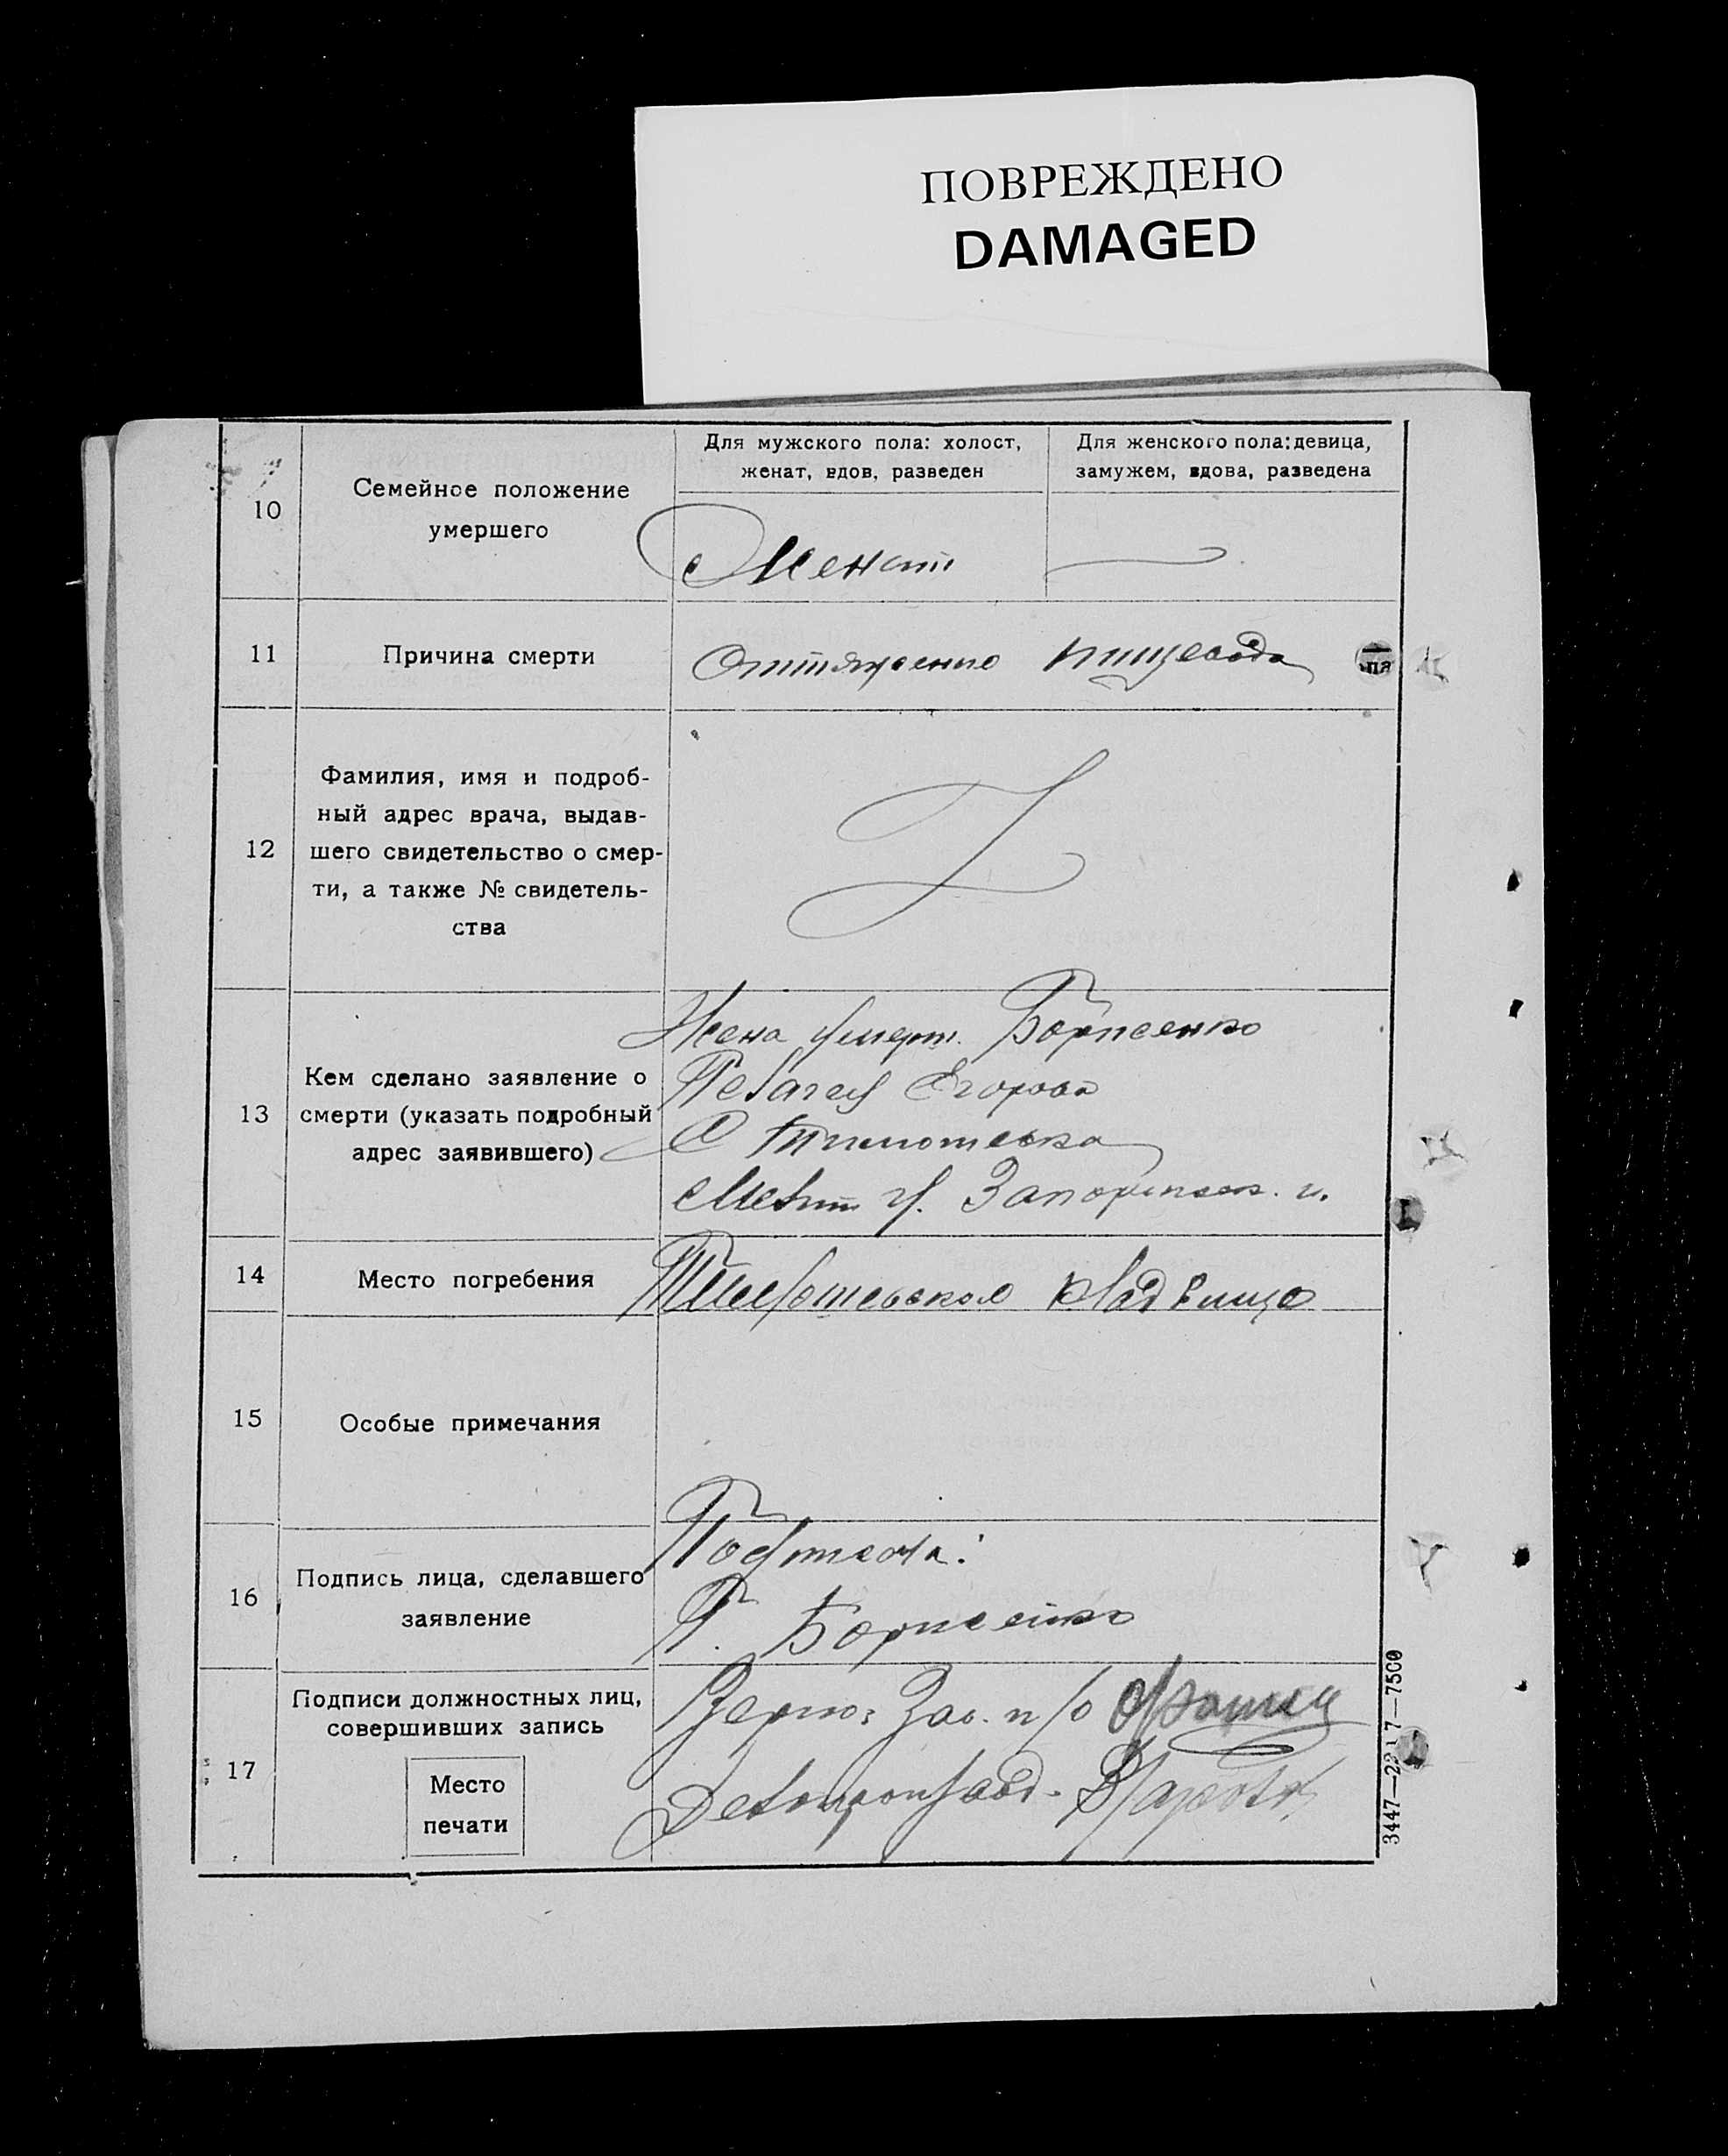 ПОВРЕЖДЕНО
DAMAGED
10
Семейное положение
умершего
Для мужского пола: холост,
женат, вдов, разведен
Для женского пола: девица,
замужем, вдова, разведена
Женат
11
Причина смерти
пищевода
12
Фамилия, имя и подроб-
ный адрес врача, выдав-
шего свидетельство о смер-
ти, а также № свидетель-
ства
13
Кем сделано заявление о
смерти (указать подробный
адрес заявившего)
Жена умерш. Борисенко
Пелагея Егоровн
С Тимошевка
Мелит Запорожск.
14
Место погребения
Тимошевское кладбище
15
Особые примечания
16
Подпись лица, сделавшего
заявление
П. Борисенко
17
Подписи должностных лиц,
совершивших запись
Место
печати
Верно: Зав. п/о
Делопроизвод.